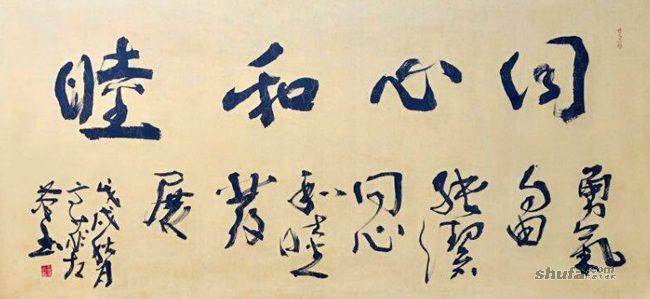 同心和睦
勇氣
自由
純潔
同心
和睦
發
展
戊戌秋月
shufa.com